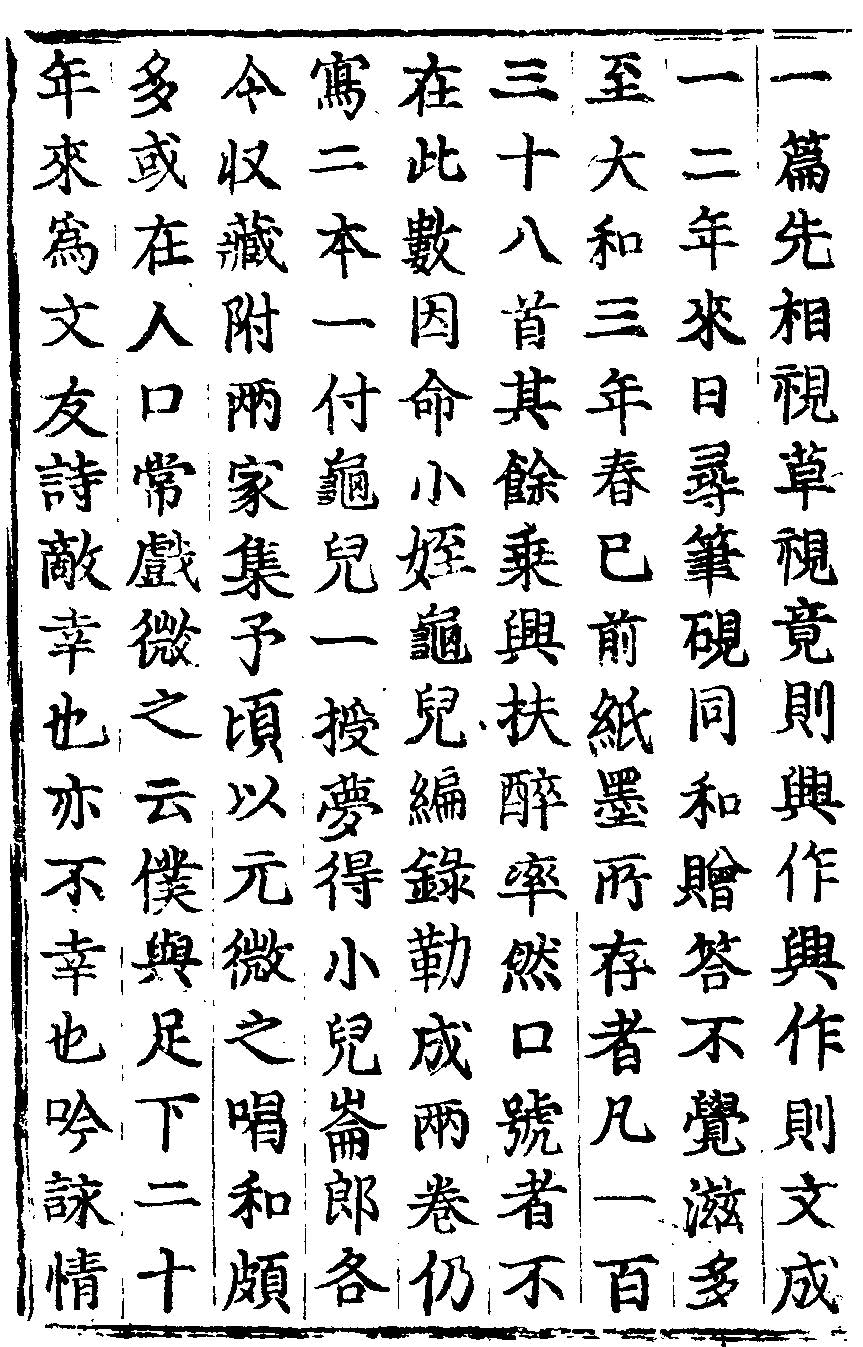 一篇先相視草視竟則興作興作則文成
一二年來日尋筆硯同和贈答不覺滋多
至大和三年春已前紙墨所存者凡一百
三十八首其餘乗興扶醉率然口號者不
在此數因命小姪龜兒編錄勒成兩卷仍
寫二本一付龜兒一授夢得小兒崙郎各
今収藏附兩家集予頃以元微之唱和頗
多或在人口常戲微之云僕與足下二十
年來爲文友詩敵幸也亦不幸也吟詠情